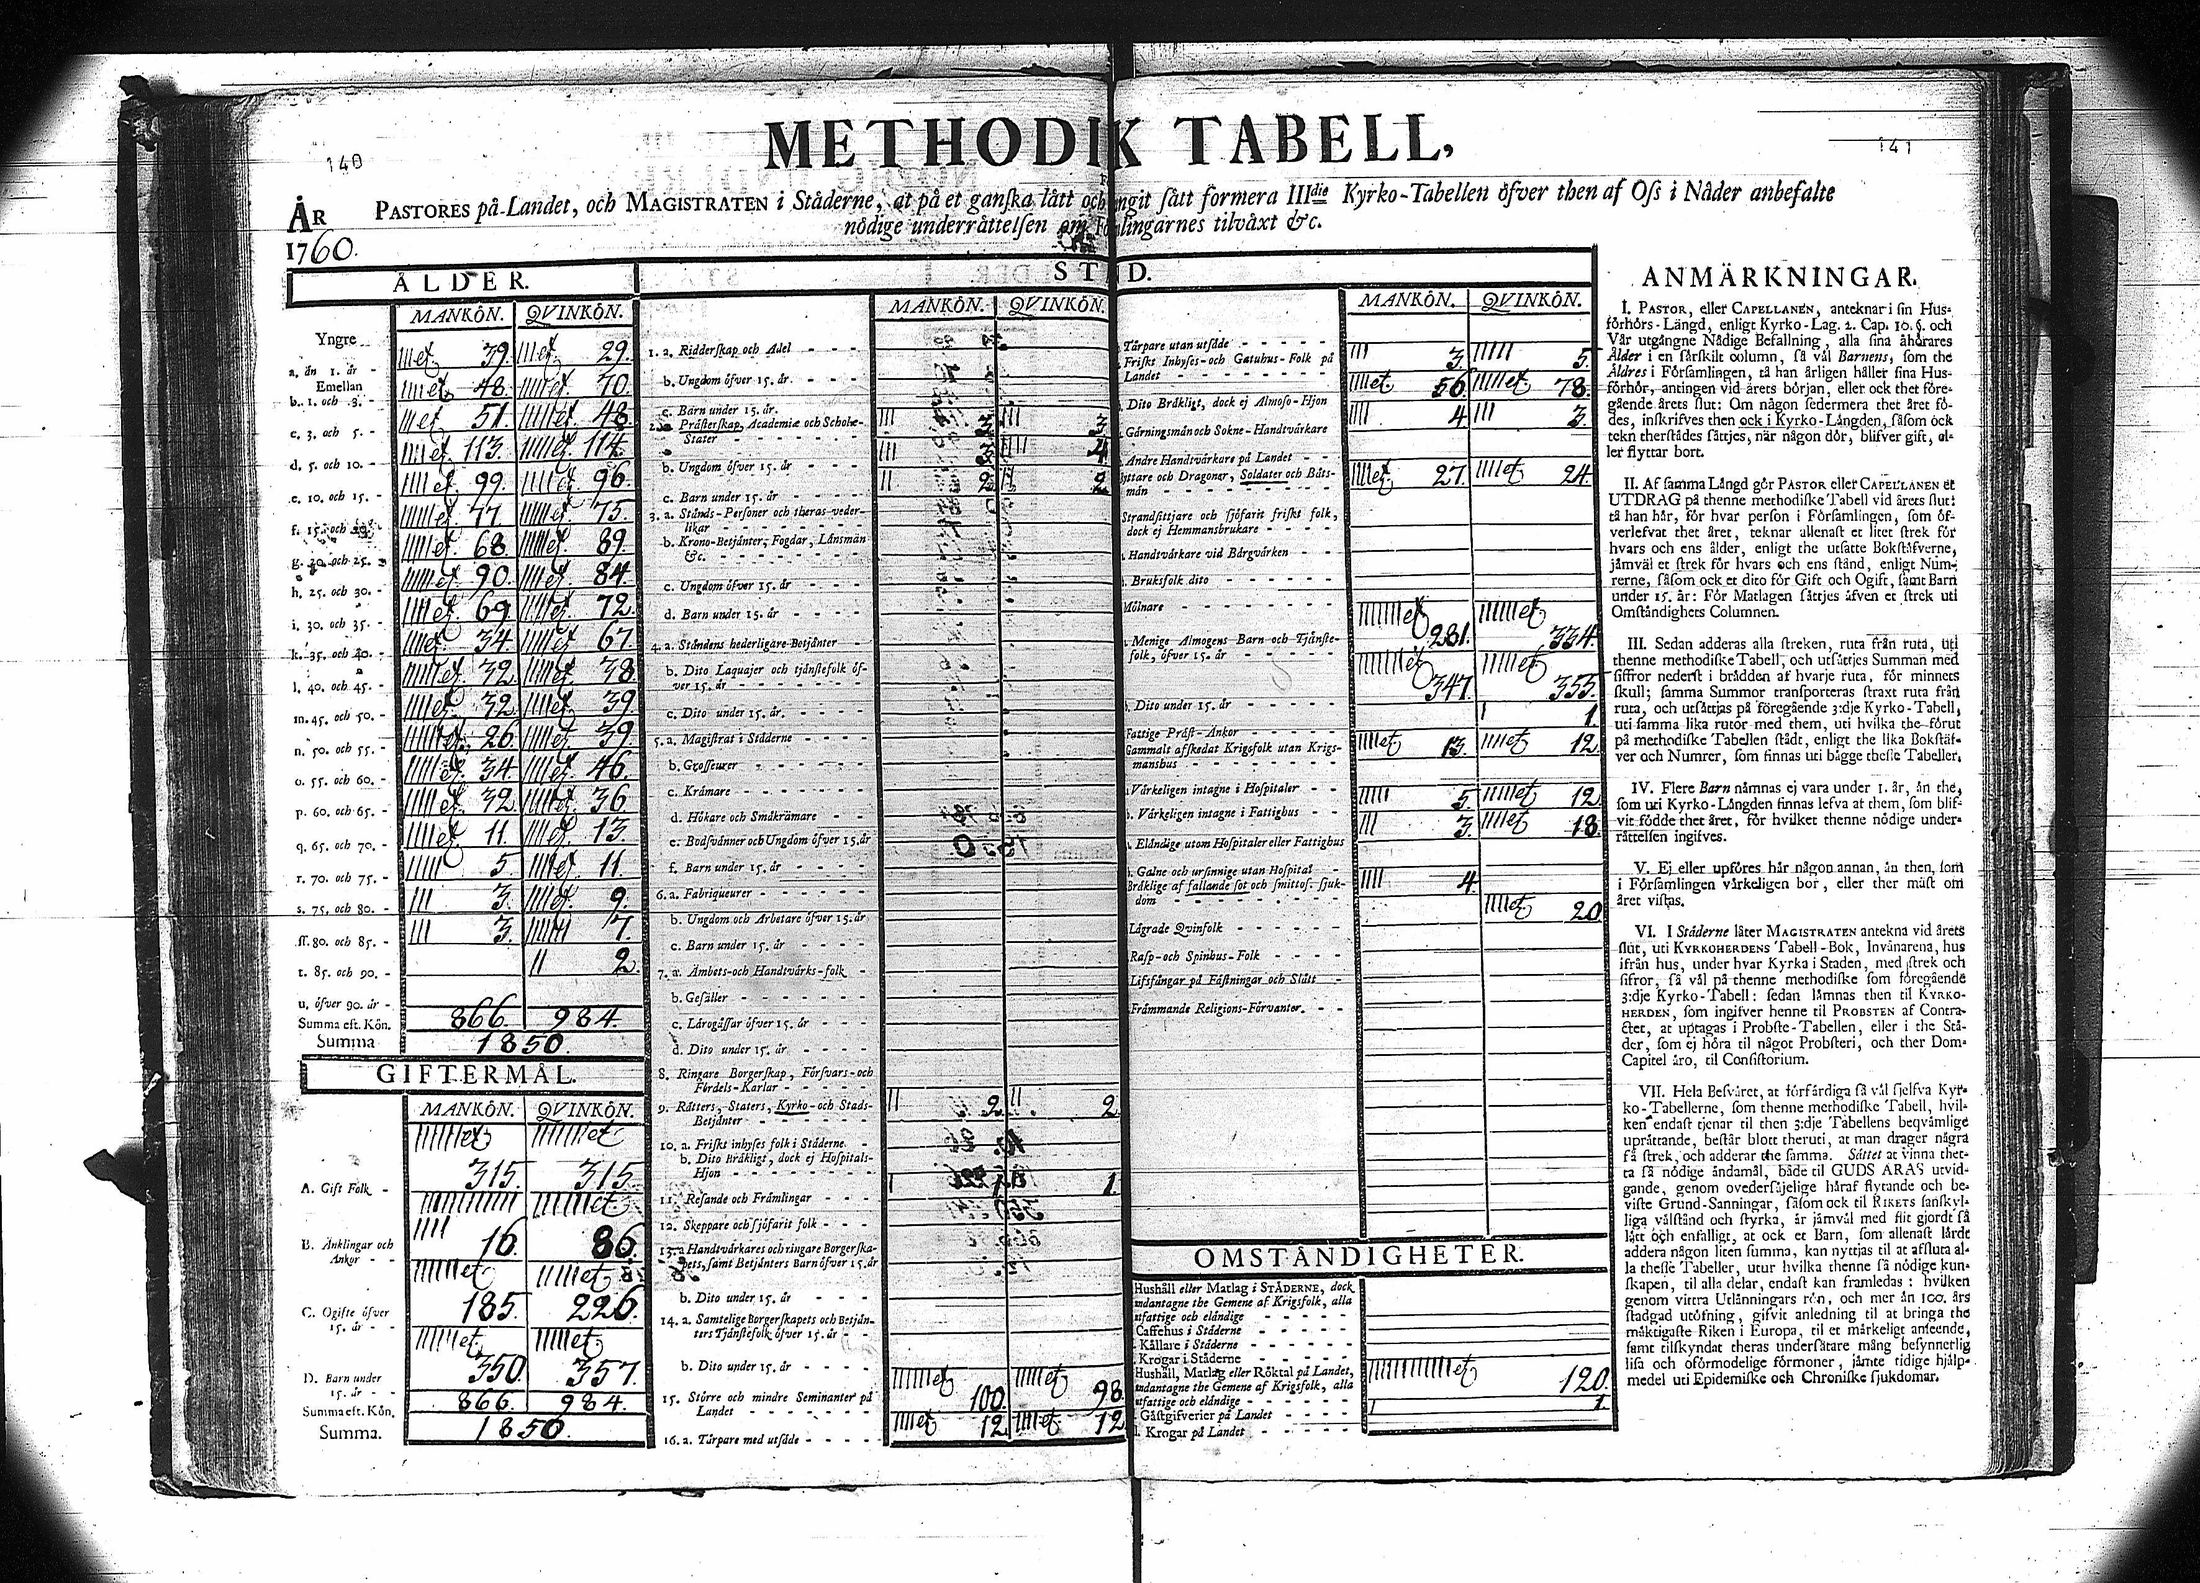 140
141
METHODIK TABELL,
ÅR
1760.
PASTORES på Landet, och MAGISTRATEN i Ståderne, at på et ganſka lått och ſått formera IIIdie Kyrko-Tabellen öfver then af Oſs i Nåder anbefalte
nödige underråttelſen om tilvåxt &c.
ÅLDER.
MANKÖN. QVINKÖN.
Yngre
a. ån 1. år - 39. 29.
Emellan
b. 1. och 3. - 48. 70.
c. 3. och 5. - 51. 48.
d. 5. och 10. - 113. 114.
e. 10. och 15. - 99. 96.
f. 15. och 77. 75.
g. och 25. 68. 89.
h. 25. och 30. - 90. 84.
i. 30. och 35. - 69. 72.
k. 35. och 40. - 34. 67.
l. 40. och 45. - 32. 38.
m. 45. och 50. - 32. 39.
n. 50. och 55. - 26. 39.
o. 55. och 60. - 34. 46.
p. 60. och 65. - 32. 36.
q. 65. och 70. - 11. 13.
r. 70. och 75. - 5. 11.
s. 75. och 80. - 3. 9.
ſſ. 80. och 85. - 3. 7.
t. 85. och 90. - 2.
u. öfver 90. år -
Summa eft. Kön. 866. 984.
Summa 1850.
GIFTERMÅL.
MANKÖN. QVINKÖN.
A. Gift Folk - 315. 315.
B. Änklingar och
Änkor - - 16. 86.
C. Ogifte öfver
15. år - - 185. 226.
D. Barn under
15. år - - 350. 357.
Summa eft. Kön. 866. 984.
Summa. 1850.
MANKÖN. QVINKÖN.
1. a. Ridderſkap och Adel - - - -
b. Ungdom öfver 15. år. - - -
c. Barn under 15. år.
Pråſterſkap, Academiæ och Scholæ-
Stater - - - - - - 3. 3.
b. Ungdom öfver 15. år - - - 3. 4.
c. Barn under 15. år - - - - 2. 2.
3. a. Stånds-Perſoner och theras veder-
likar - - - - - -
b. Krono-Betjånter, Fogdar, Lånsmån
&c. - - - - - -
c. Ungdom öfver 15. år - - - -
d. Barn under 15. år - - - -
4. a. Ståndens hederligare Betjånter - - -
b. Dito Laquajer och tjånſtefolk öf-
ver 15. år - - - - - -
c. Dito under 15. år. - - - -
5. a. Magiſtrat i Ståderne - - - -
b. Groſſeurer - - - - - -
c. Kråmare - - - - - -
d. Hökare och Småkråmare - - -
e. Bodſvånner och Ungdom öfver 15. år
f. Barn under 15. år - - - -
6. a. Fabriqueurer - - - - -
b. Ungdom och Arbetare öfver 15. år
c. Barn under 15. år - - - -
7. a. Åmbets-och Handtvårks-folk -
b. Geſåller - - - - - - -
c. Lårogåſſar öfver 15. år - - - -
d. Dito under 15. år - - - -
8. Ringare Borgerſkap, Förſvars-och
Fördels-Karlar - - - - -
9. Råtters, Staters, Kyrko-och Stads-
Betjånter - - - - - - 2. 2.
10. a. Friſkt inhyſes folk i Ståderne. -
b. Dito Bråkligt, dock ej Hoſpitals-
Hjon - - - - - - 1. 1.
11. Reſande och Fråmlingar - - -
12. Skeppare och ſjöfarit folk - - -
13. a Handtvårkares och ringare Borgerſka-
pets, ſamt Betjånters Barn öfver 15. år
b. Dito under 15. år - - - -
14. a. Samtelige Borgerſkapets och Betjån-
ters Tjånſtefolk öfver 15. år - -
b. Dito under 15. år - - - -
15. Större och mindre Seminanter på
Landet - - - - - - - 100. 98.
16. a. Tårpare med utſåde - - - - - 12. 12
MANKÖN. QVINKÖN.
Tårpare utan utſåde - - - - - - 3. 5.
Friſkt Inhyſes-och Gatuhus-Folk på
Landet - - - - - - - - 56. 78.
Dito Bråkligt, dock ej Almoſo-Hjon 4. 3.
Gårningsmån och Sokne-Handtvårkare
Andre Handtvårkare på Landet - -
Ryttare och Dragoner, Soldater och Båts-
mån - - - - - - - - 27. 24.
Strandſittjare och ſjöfarit friſkt folk,
dock ej Hemmansbrukare - - -
Handtvårkare vid Bårgvårken - - -
Bruksfolk dito - - - - - -
Mölnare - - - - - - - -
Menige Almogens Barn och Tjånſte-
folk, öfver 15. år - - - - - 281. 334.
Dito under 15. år - - - - - 347. 355.
Fattige Pråſt-Ånkor - - - - - 1.
Gammalt afſkedat Krigsfolk utan Krigs-
manshus - - - - - - - 13. 12.
Vårkeligen intagne i Hoſpitaler - -
Vårkeligen intagne i Fattighus - - 5. 12.
Elåndige utom Hoſpitaler eller Fattighus 3. 18.
Galne och urſinnige utan Hoſpital -
Bråklige af fallande ſot och ſmittoſ. ſjuk-
dom - - - - - - - - 4.
Lågrade Qvinfolk - - - - - - 20
Raſp-och Spinhus-Folk - - - -
Lifsfångar på Fåſtningar och Slått -
Fråmmande Religions-Förvanter. - -
OMSTÅNDIGHETER.
Hushåll eller Matlag i STÅDERNE, dock
undantagne the Gemene af Krigsfolk, alla
utfattige och elåndige - - - - -
Caffehus i Ståderne - - - - -
Kållare i Ståderne - - - - -
Krogar i Ståderne - - - - -
Hushåll, Matlag eller Röktal på Landet,
undantagne the Gemene af Krigsfolk, alla
utfattige och elåndige - - - - - 120.
Gåſtgifverier på Landet - - - - 1.
Krogar på Landet - - - - -
ANMÄRKNINGAR.
I. PASTOR, eller CAPELLANEN, anteknar i ſin Hus-
förhörs-Långd, enligt Kyrko-Lag. 2. Cap. 10. §. och
Vår utgångne Nådige Befallning, alla ſina åhörares
Ålder i en ſårſkilt column, ſå vål Barnens, ſom the
Åldres i Förſamlingen, tå han årligen håller ſina Hus-
förhör, antingen vid årets början, eller ock thet före-
gående årets ſlut: Om någon ſedermera thet året fö-
des, inſkrifves then ock i Kyrko-Långden, ſåſom ock
tekn therſtådes ſåttjes, når någon dör, blifver gift, el-
ler flyttar bort.
II. Af ſamma Långd gör PASTOR eller CAPELLANEN et
UTDRAG på thenne methodiſke Tabell vid årets ſlut:
tå han hår, för hvar perſon i Förſamlingen, ſom öf-
verlefvat thet året, teknar allenaſt et litet ſtrek för
hvars och ens ålder, enligt the utſatte Bokſtåfverne,
jåmvål et ſtrek för hvars och ens ſtånd, enligt Num-
rerne, ſåſom ock et dito för Gift och Ogift, ſamt Barn
under 15. år: För Matlagen ſåttjes åfven et ſtrek uti
Omſtåndighets Columnen.
III. Sedan adderas alla ſtreken, ruta från ruta, uti
thenne methodiſke Tabell, och utſåttjes Summan med
ſiffror nederſt i brådden af hvarje ruta, för minnets
ſkull; ſamma Summor tranſporteras ſtraxt ruta från
ruta, och utſåttjas på föregående 3:dje Kyrko-Tabell,
uti ſamma lika rutor med them, uti hvilka the förut
på methodiſke Tabellen ſtådt, enligt the lika Bokſtåf-
ver och Numrer, ſom finnas uti bågge theſſe Tabeller.
IV. Flere Barn nåmnas ej vara under 1. år, ån the,
ſom uti Kyrko-Långden finnas lefva at them, ſom blif-
vit födde thet året, för hvilket thenne nödige under-
råttelſen ingifves.
V. Ej eller upföres hår någon annan, ån then, ſom
i Förſamlingen vårkeligen bor, eller ther måſt om
året viſtas.
VI. I Ståderne låter MAGISTRATEN antekna vid årets
ſlut, uti KYRKOHERDENS Tabell-Bok, Invånarena, hus
ifrån hus, under hvar Kyrka i Staden, med ſtrek och
ſifror, ſå vål på thenne methodiſke ſom föregående
3:dje Kyrko-Tabell: ſedan låmnas then til KYRKO-
HERDEN, ſom ingifver henne til PROBSTEN af Contra-
ctet, at uptagas i Probſte-Tabellen, eller i the Stå-
der, ſom ej höra til något Probſteri, och ther Dom-
Capitel åro, til Conſiſtorium.
VII. Hela Beſvåret, at förfårdiga ſå vål ſjelfva Kyr-
ko-Tabellerne, ſom thenne methodiſke Tabell, hvil-
ken endaſt tjenar til then 3:dje Tabellens beqvåmlige
upråttande, beſtår blott theruti, at man drager några
få ſtrek, och adderar the ſamma. Såttet at vinna thet-
ta ſå nödige åndamål, både til GUDS ÅRAS utvid-
gande, genom oveder­ſåjelige håraf flytande och be-
viſte Grund-Sanningar, ſåſom ock til RIKETS ſanſkyl-
liga vålſtånd och ſtyrka, år jåmvål med flit gjordt ſå
lått och enfalligt, at ock et Barn, ſom allenaſt lårdt
addera någon liten ſumma, kan nyttjas til at afſluta al-
la theſſe Tabeller, utur hvilka thenne ſå nödige kun-
ſkapen, til alla delar, endaſt kan framledas: hvilken
genom vittra Utlånningars rön, och mer ån 100. års
ſtadgad utöfning, gifvit anledning til at bringa the
måktigaſte Riken i Europa, til et mårkeligt anſeende,
ſamt tilſkyndat theras underſåtare mång beſynnerlig
liſa och oförmodelige förmoner, jåmte tidige hjålp-
medel uti Epidemiſke och Chroniſke ſjukdomar.